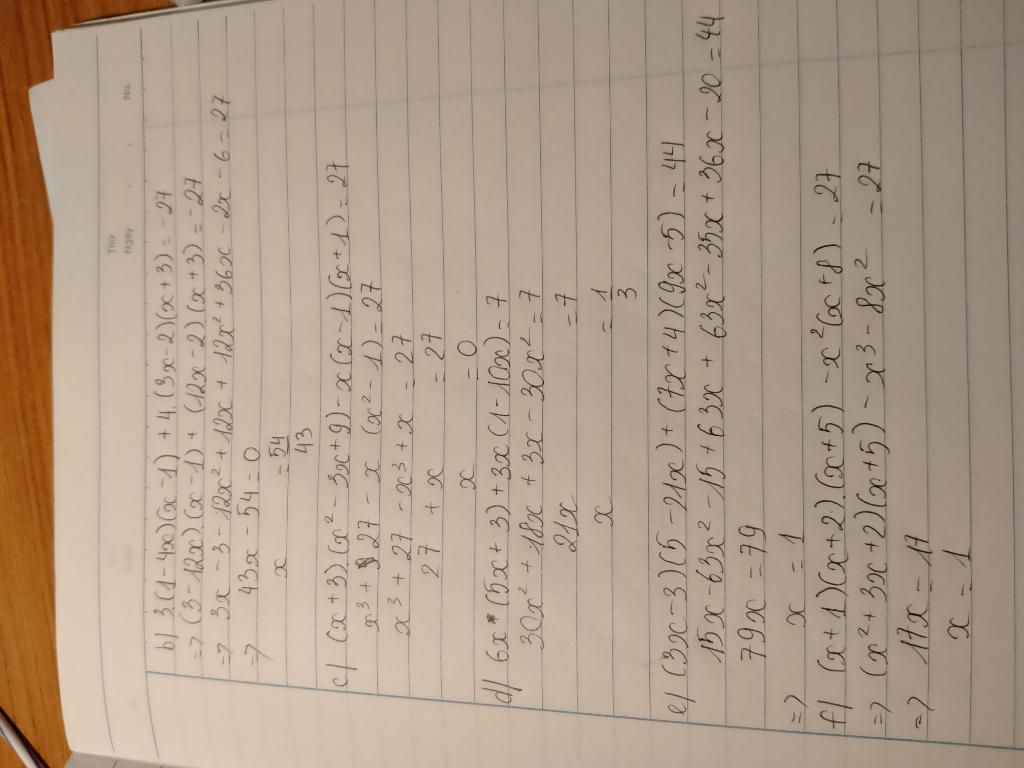 Thứ
Ngày
No.
b/ 3(1-4x)(x-1) + 4.(3x-2)(x+3) = -27
=> (3-12x)(x-1) + (12x-2)(x+3) = -27
=> 3x - 3 - 12x² + 12x + 12x² + 36x - 2x - 6 = 27
=> 43x - 54 = 0
x = 54/43
c/ (x+3)(x² - 3x+9) - x(x-1)(x+1) = 27
x³ + 27 - x (x² - 1) = 27
x³ + 27 - x³ + x = 27
27 + x = 27
x = 0
d/ 6x*(5x+3) + 3x(1-10x) = 7
30x² + 18x + 3x - 30x² = 7
21x = 7
x = 1/3
e/ (3x-3)(5-21x) + (7x+4)(9x-5) = 44
15x - 63x² - 15 + 63x + 63x² - 35x + 36x - 20 = 44
79x = 79
=> x = 1
f/ (x+1)(x+2).(x+5) - x²(x+8) = 27
=> (x² + 3x + 2)(x+5) - x³ - 8x² = 27
=> 17x = 17
x = 1